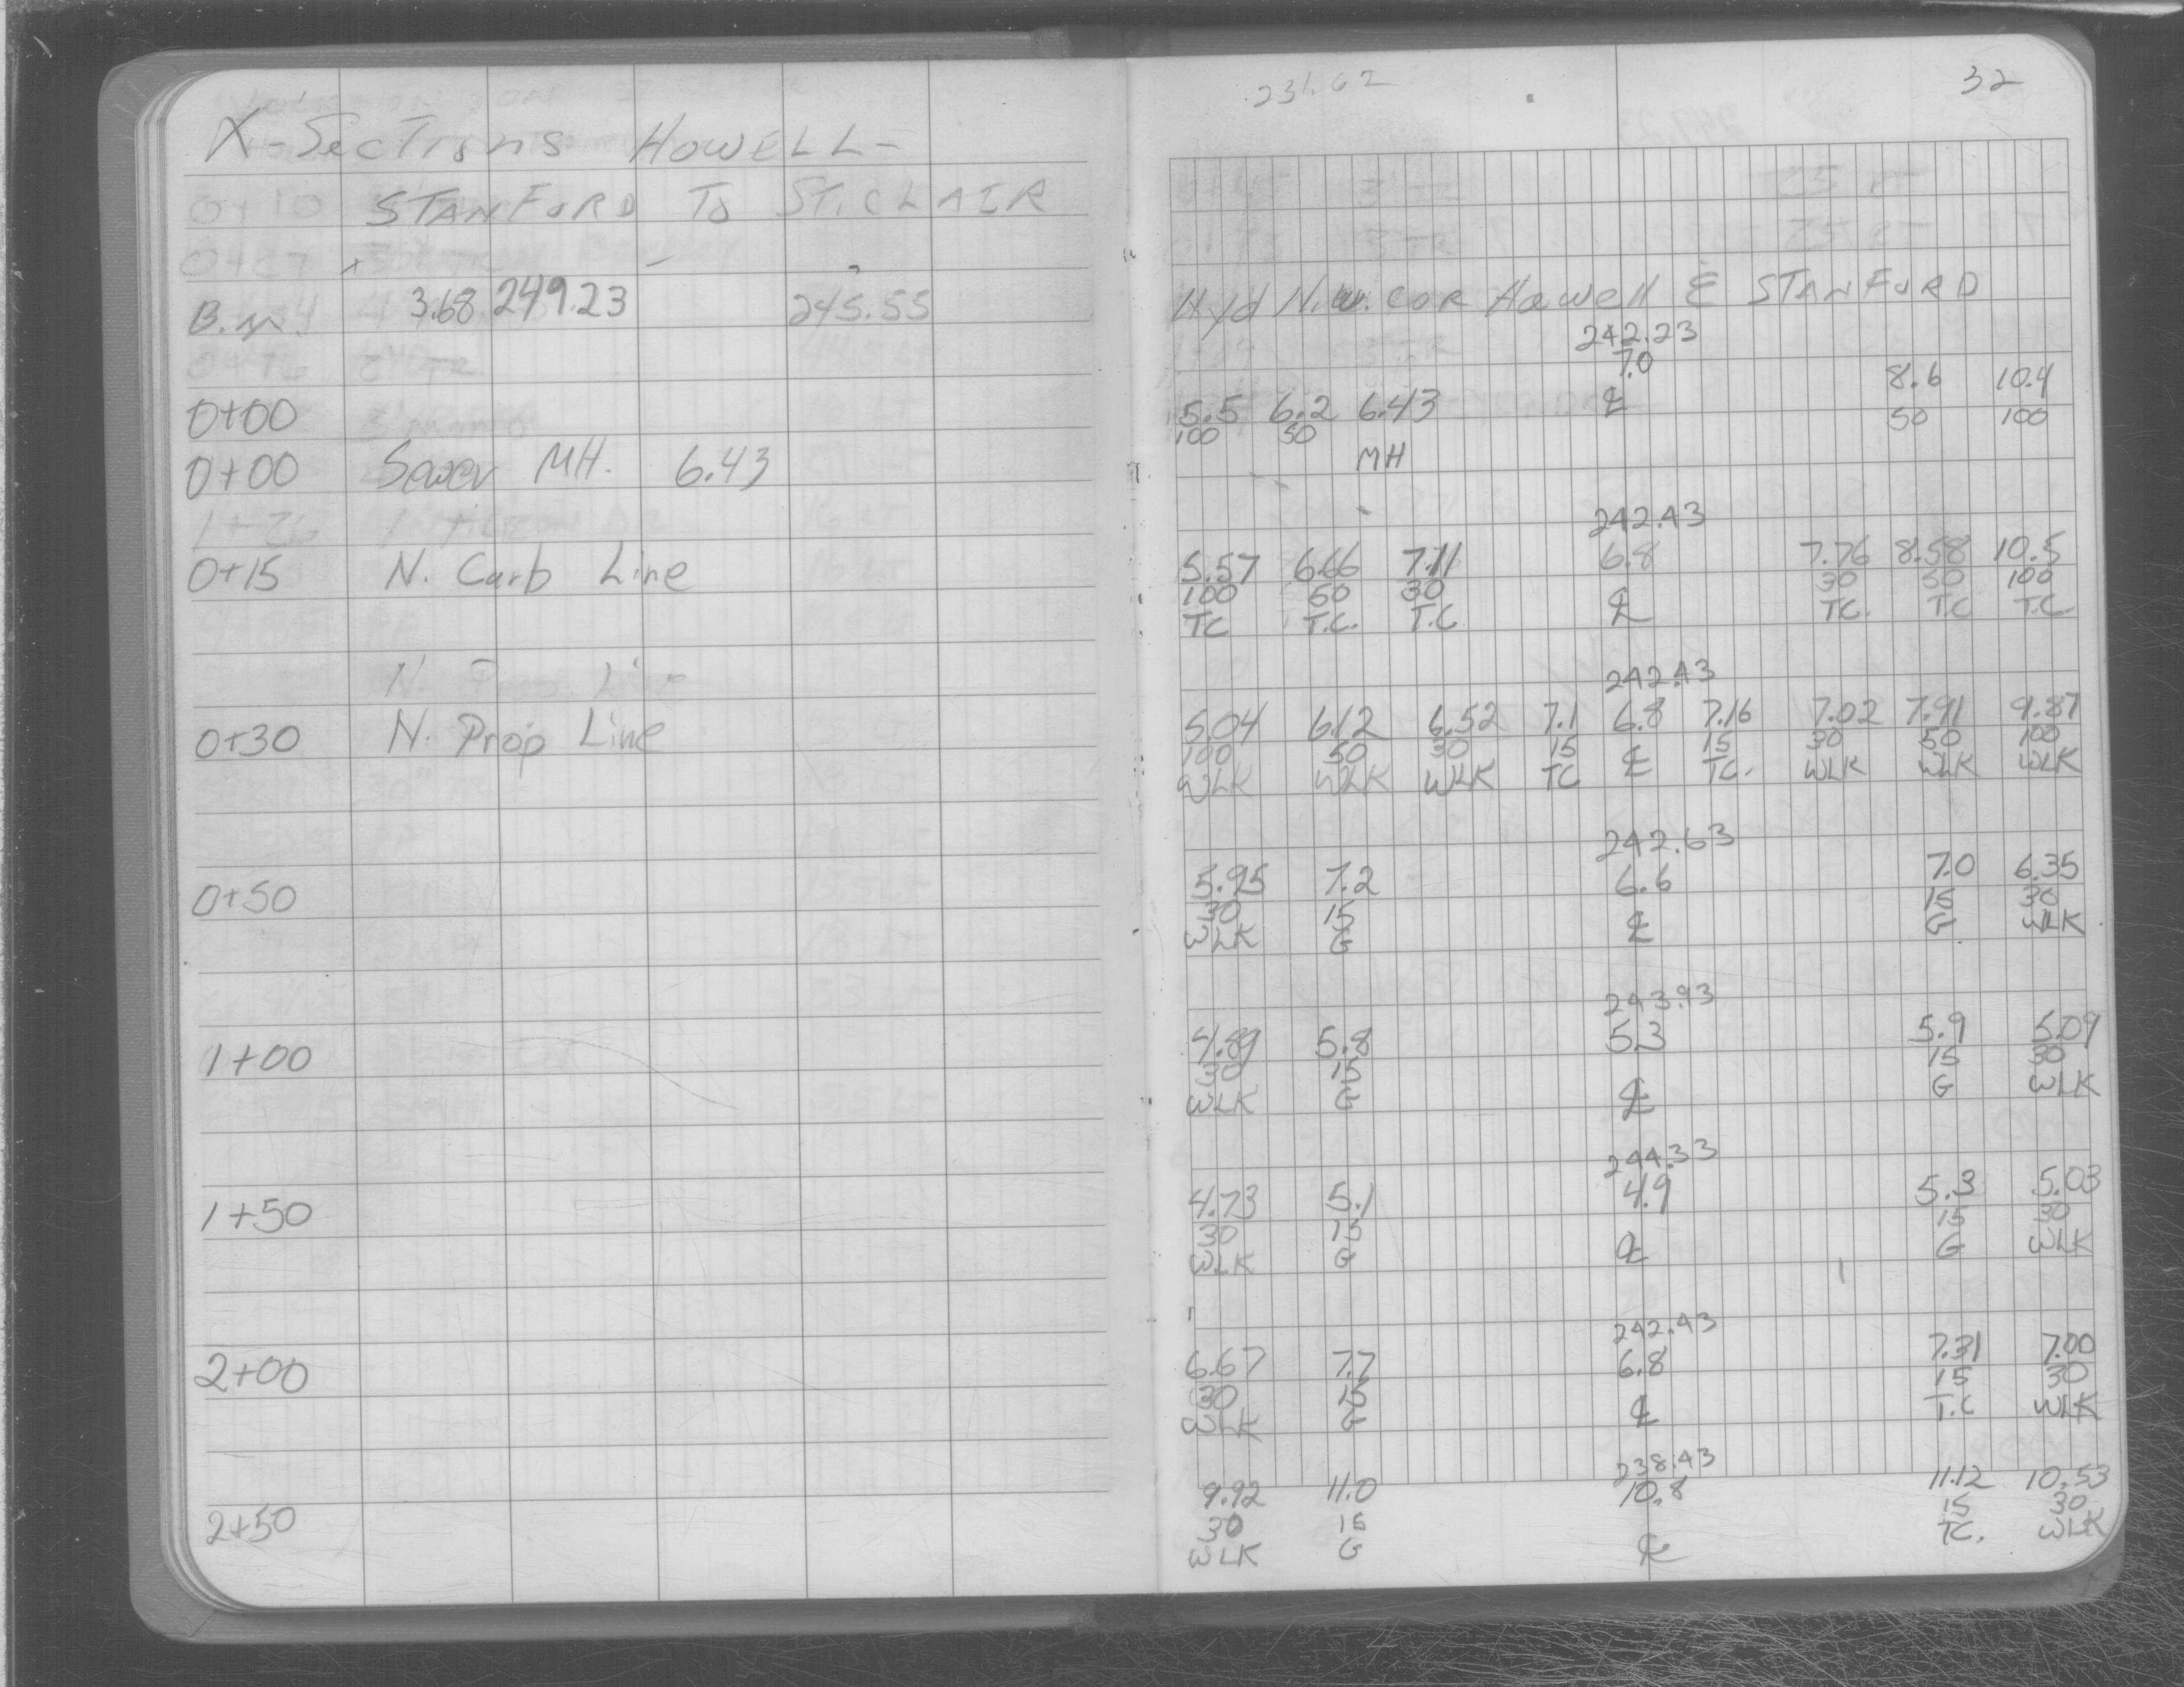 X-Sections HOWELL-
STANFORD TO ST. CLAIR
B.M. 3.68 249.23 245.55
0+00
0+00 Sewer MH. 6.43
0+15 N. Curb Line
N. Prop Line
0+30 N. Prop Line
0+50
1+00
1+50
2+00
2+50
231.62 32
Hyd N.W. COR Howell & STANFORD
242.23
7.0 8.6 10.4
5.5 6.2 6.43 ℄ 50 100
100 50
MH
242.43
5.57 6.66 7.11 6.8 7.76 8.58 10.5
100 50 30 30 50 100
TC T.C. T.C. ℄ TC. T.C T.C.
242.43
5.04 6.12 6.52 7.1 6.8 7.16 7.02 7.91 9.87
100 50 30 15 15 30 50 100
WLK WLK WLK TC ℄ TC. WLK WLK WLK
242.63
5.95 7.2 6.6 7.0 6.35
30 15 15 30
WLK G ℄ G WLK
243.93
4.89 5.8 5.3 5.9 5.09
30 15 15 30
WLK G ℄ G WLK
244.33
4.73 5.1 4.9 5.3 5.03
30 15 15 30
WLK G ℄ G WLK
242.43
6.67 7.7 6.8 7.31 7.00
30 15 15 30
WLK G ℄ T.C WLK
238.43
9.92 11.0 10.8 11.12 10.53
30 15 15 30
WLK G ℄ TC. WLK